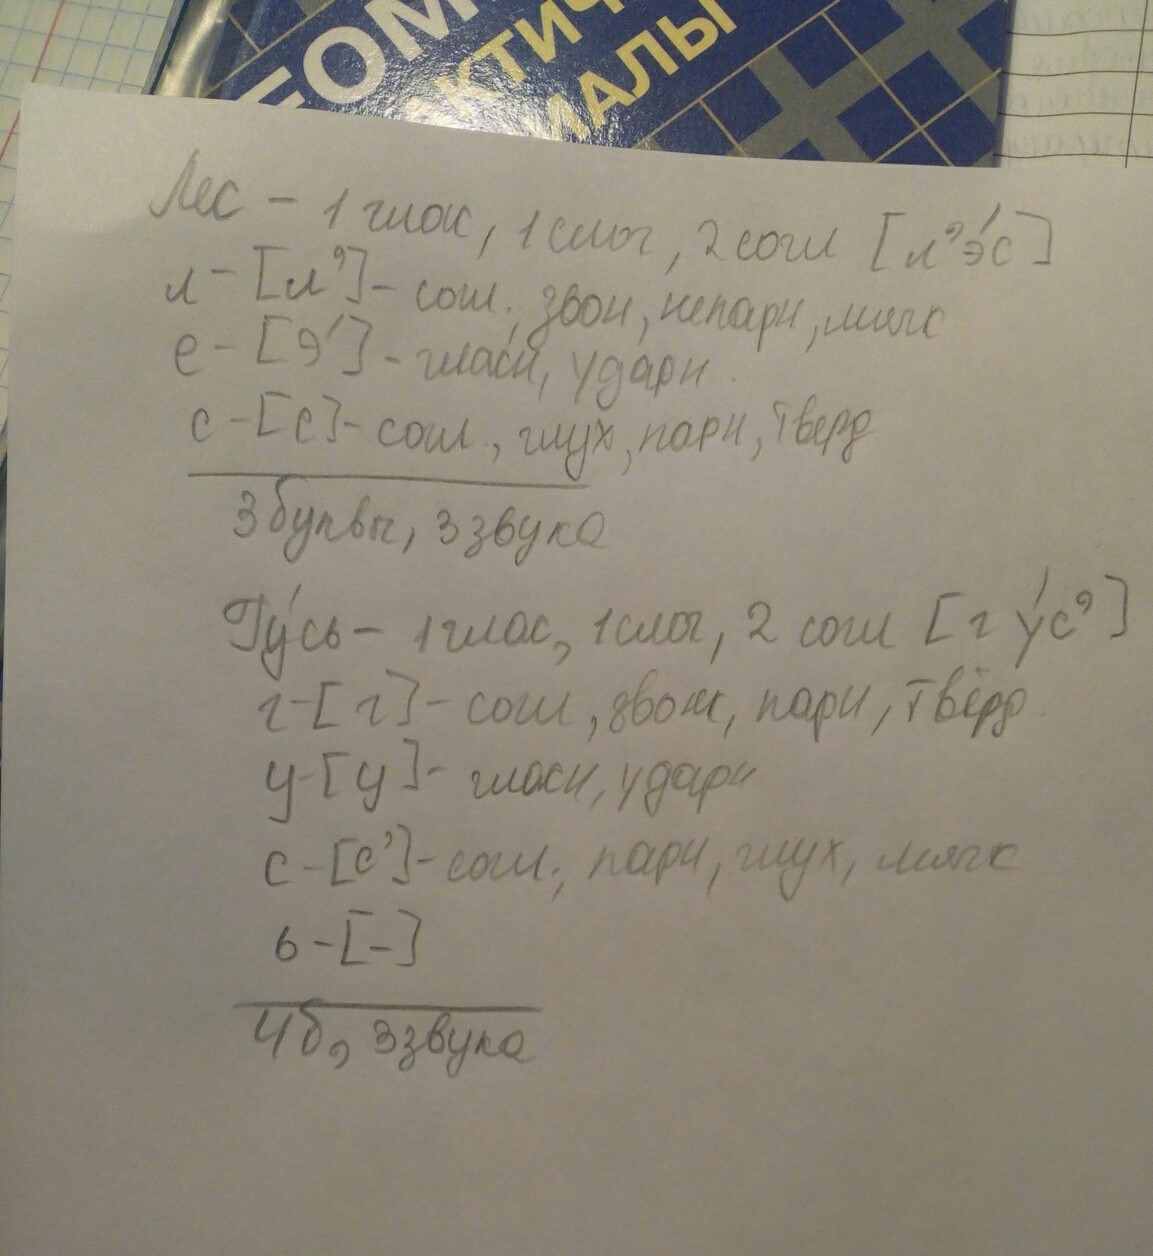 ЕОМ
АКТИЧ
ИАЛЫ
Лес – 1 глас, 1 слог, 2 согл [л’э́с]
л – [л’] – согл., звон, непарн, мягк
е – [э́] – гласн, ударн.
с – [с] – согл., глух, парн, твёрд
3 буквы, 3 звука
Гу́сь – 1 глас, 1 слог, 2 согл [г у́с’]
г – [г] – согл, звонк, парн, твёрд.
у – [у] – гласн, ударн
с – [с’] – согл., парн, глух, мягк
ь – [–]
4 б, 3 звука